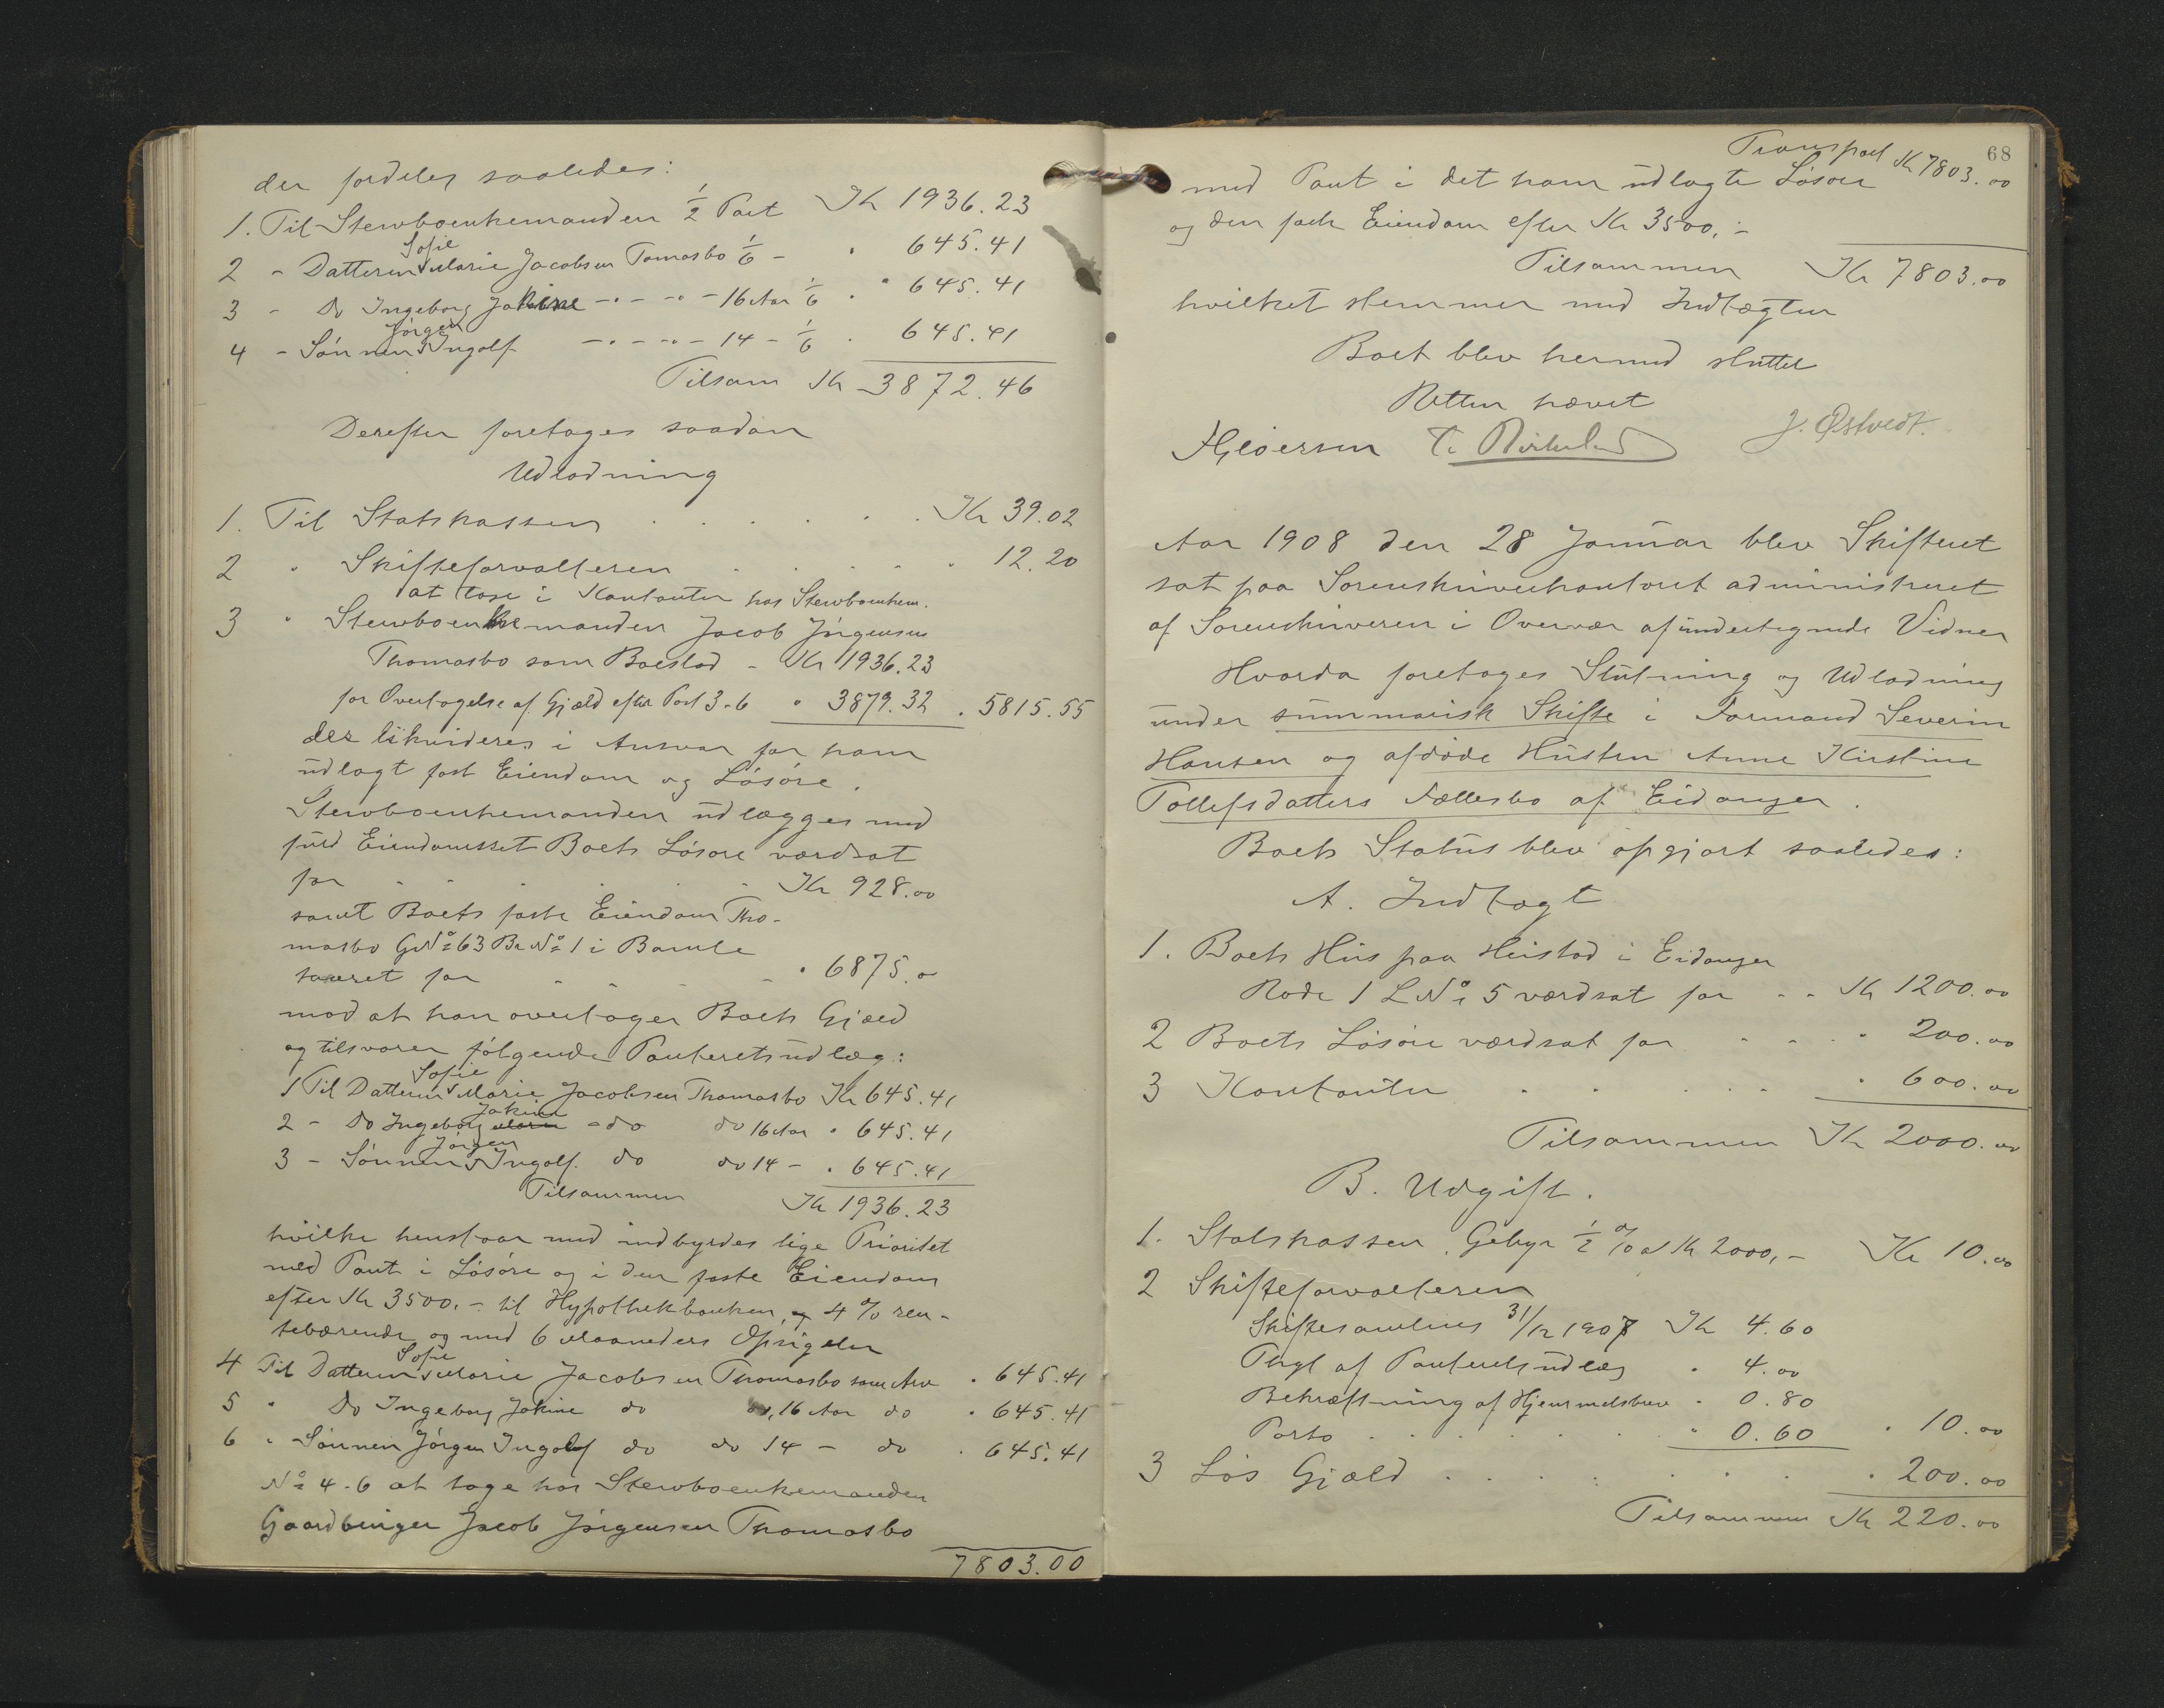 der fordeles saaledes:
1. Til Stervboenkemanden 1/2 Part Kr 1936.23
Sofie
2 - Datteren Marie Jacobsen Tomasbo 1/6 - " 645.41
3 - Do Ingeborg Jakine -"- -"- 16 Aar 1/6 " " 645.41
Jörgen
4 - Sönnen Ingolf -"- -"- 14 - 1/6 " 645.41
Tilsam Kr 3872.46
Derefter foretages saadan
Udlodning
1. Til Statskassen . . . . . Kr 39.02
2 " Skifteforvalteren . . . . . " 12.20
at tage i Kontanter hos Stervboenkem.
3 " Stervboenkemanden Jacob Jörgensen
Thomasbo som Boeslod - Kr 1936.23
for Overtagelse af Gjæld efter Post 3-6 " 3879.32 " 5815.55
der likvideres i Ansvar for ham
udlagt fast Eiendom og Lösöre.
Stervboenkemanden udlægges med
fuld Eiendomsret Boets Lösöre værdsat
for . . . . . Kr 928.00
samt Boets faste Eiendom Tho-
masbo GNo 63 BrNo 1 i Bamle
taxeret for - - - - " 6875.00
mod at han overtager Boets Gjæld
og tilsvarer fölgende Panteretsudlæg:
Sofie
1 Til Datteren Marie Jacobsen Thomasbo Kr 645.41
Jakine
2 - Do Ingeborg Marie - do do 16 Aar " 645.41
Jörgen
3 - Sönnen Ingolf do do 14 - " 645.41
Tilsammen Kr 1936.23
hvilke henstaar med indbyrdes lige Prioritet
med Pant i Lösöre og i den faste Eiendom
efter Kr 3500.- til Hypothekbanken, og 4 % ren-
tebærende og med 6 Maaneders Opsigelse
Sofie
4 Til Datteren Marie Jacobsen Thomasbo som Arv " 645.41
5 " Do Ingeborg Jakine do do, 16 Aar do " 645.41
6 " Sönnen Jörgen Ingolf do do 14 - do " 645.41
No 4-6 at tage hos Stervboenkemanden
Gaardbruger Jacob Jörgensen Thomasbo
7803.00
68
Transport Kr 7803.00
med Pant i det ham udlagte Lösöre
og den faste Eiendom efter Kr 3500.-
Tilsammen Kr 7803.00
hvilket stemmer med Indtægten
Boet blev hermed sluttet
Retten hævet
J. Østvedt.
Aar 1908 den 28 Januar blev Skifteret
sat paa Sorenskriverkontoret administreret
af Sorenskriveren i Overvær af undertegnede Vidner
Hvorda foretages Slutning og Udlodning
under summarisk Skifte i Formand Severin
Hansen og afdöde Hustru Anne Kirstine
Tollefsdatters Fællesbo af Eidanger.
Boets Status blev opgjort saaledes:
A. Indtægt
1. Boets Hus paa Heistad i Eidanger
Rode 1 LNo 5 værdsat for - - Kr 1200.00
2 Boets Lösöre værdsat for - - - " 200.00
3 Kontanter . . . . . " 600.00
Tilsammen Kr 2000.00
B. Udgift.
1. Statskassen, Gebyr 1/2 % af Kr 2000,- Kr 10.00
2 Skifteforvalteren
Skiftesamling 31/12 1907 Kr 4.60
Thgl af Panteretsudlæg " 4.00
Bekræftning af Hjemmelsbrev " 0.80
Porto . . . . . " 0.60 " 10.00
3 Lös Gjæld . . . . . " 200.00
Tilsammen Kr 220.00